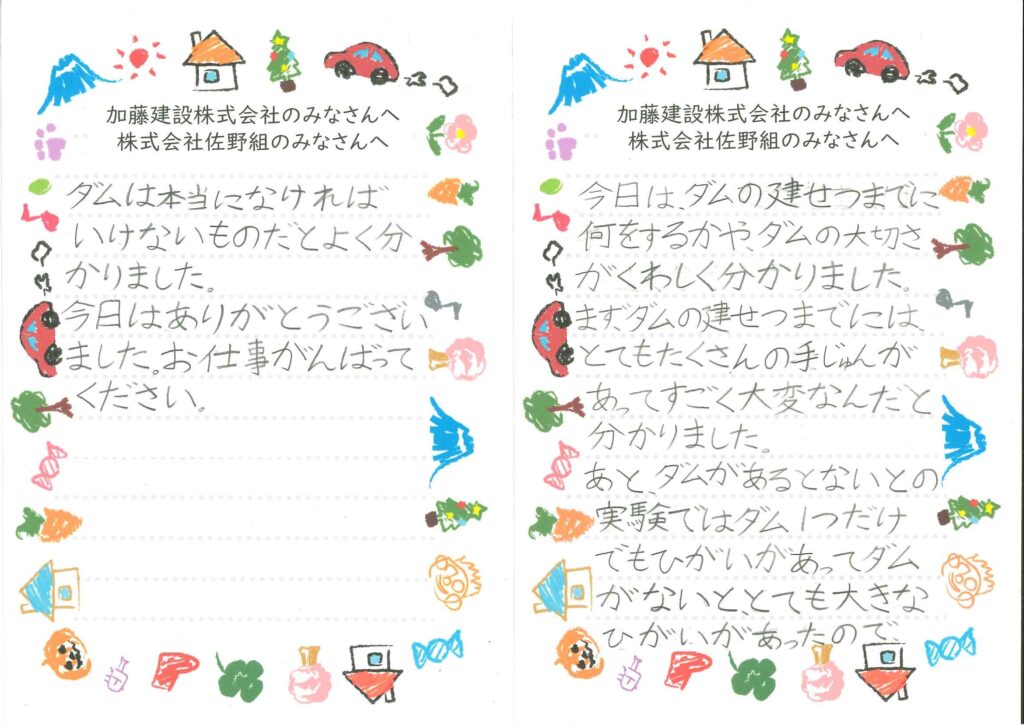 加藤建設株式会社のみなさんへ
株式会社佐野組のみなさんへ
ダムは本当になければ
いけないものだとよく分
かりました。
今日はありがとうござい
ました。お仕事がんばって
ください。
加藤建設株式会社のみなさんへ
株式会社佐野組のみなさんへ
今日は、ダムの建せつまでに
何をするかや、ダムの大切さ
がくわしく分かりました。
まず、ダムの建せつまでには、
とてもたくさんの手じゅんが
あってすごく大変なんだと
分かりました。
あと、ダムがあるとないとの
実験ではダム1つだけ
でもひがいがあってダム
がないと、とても大きな
ひがいがあったので